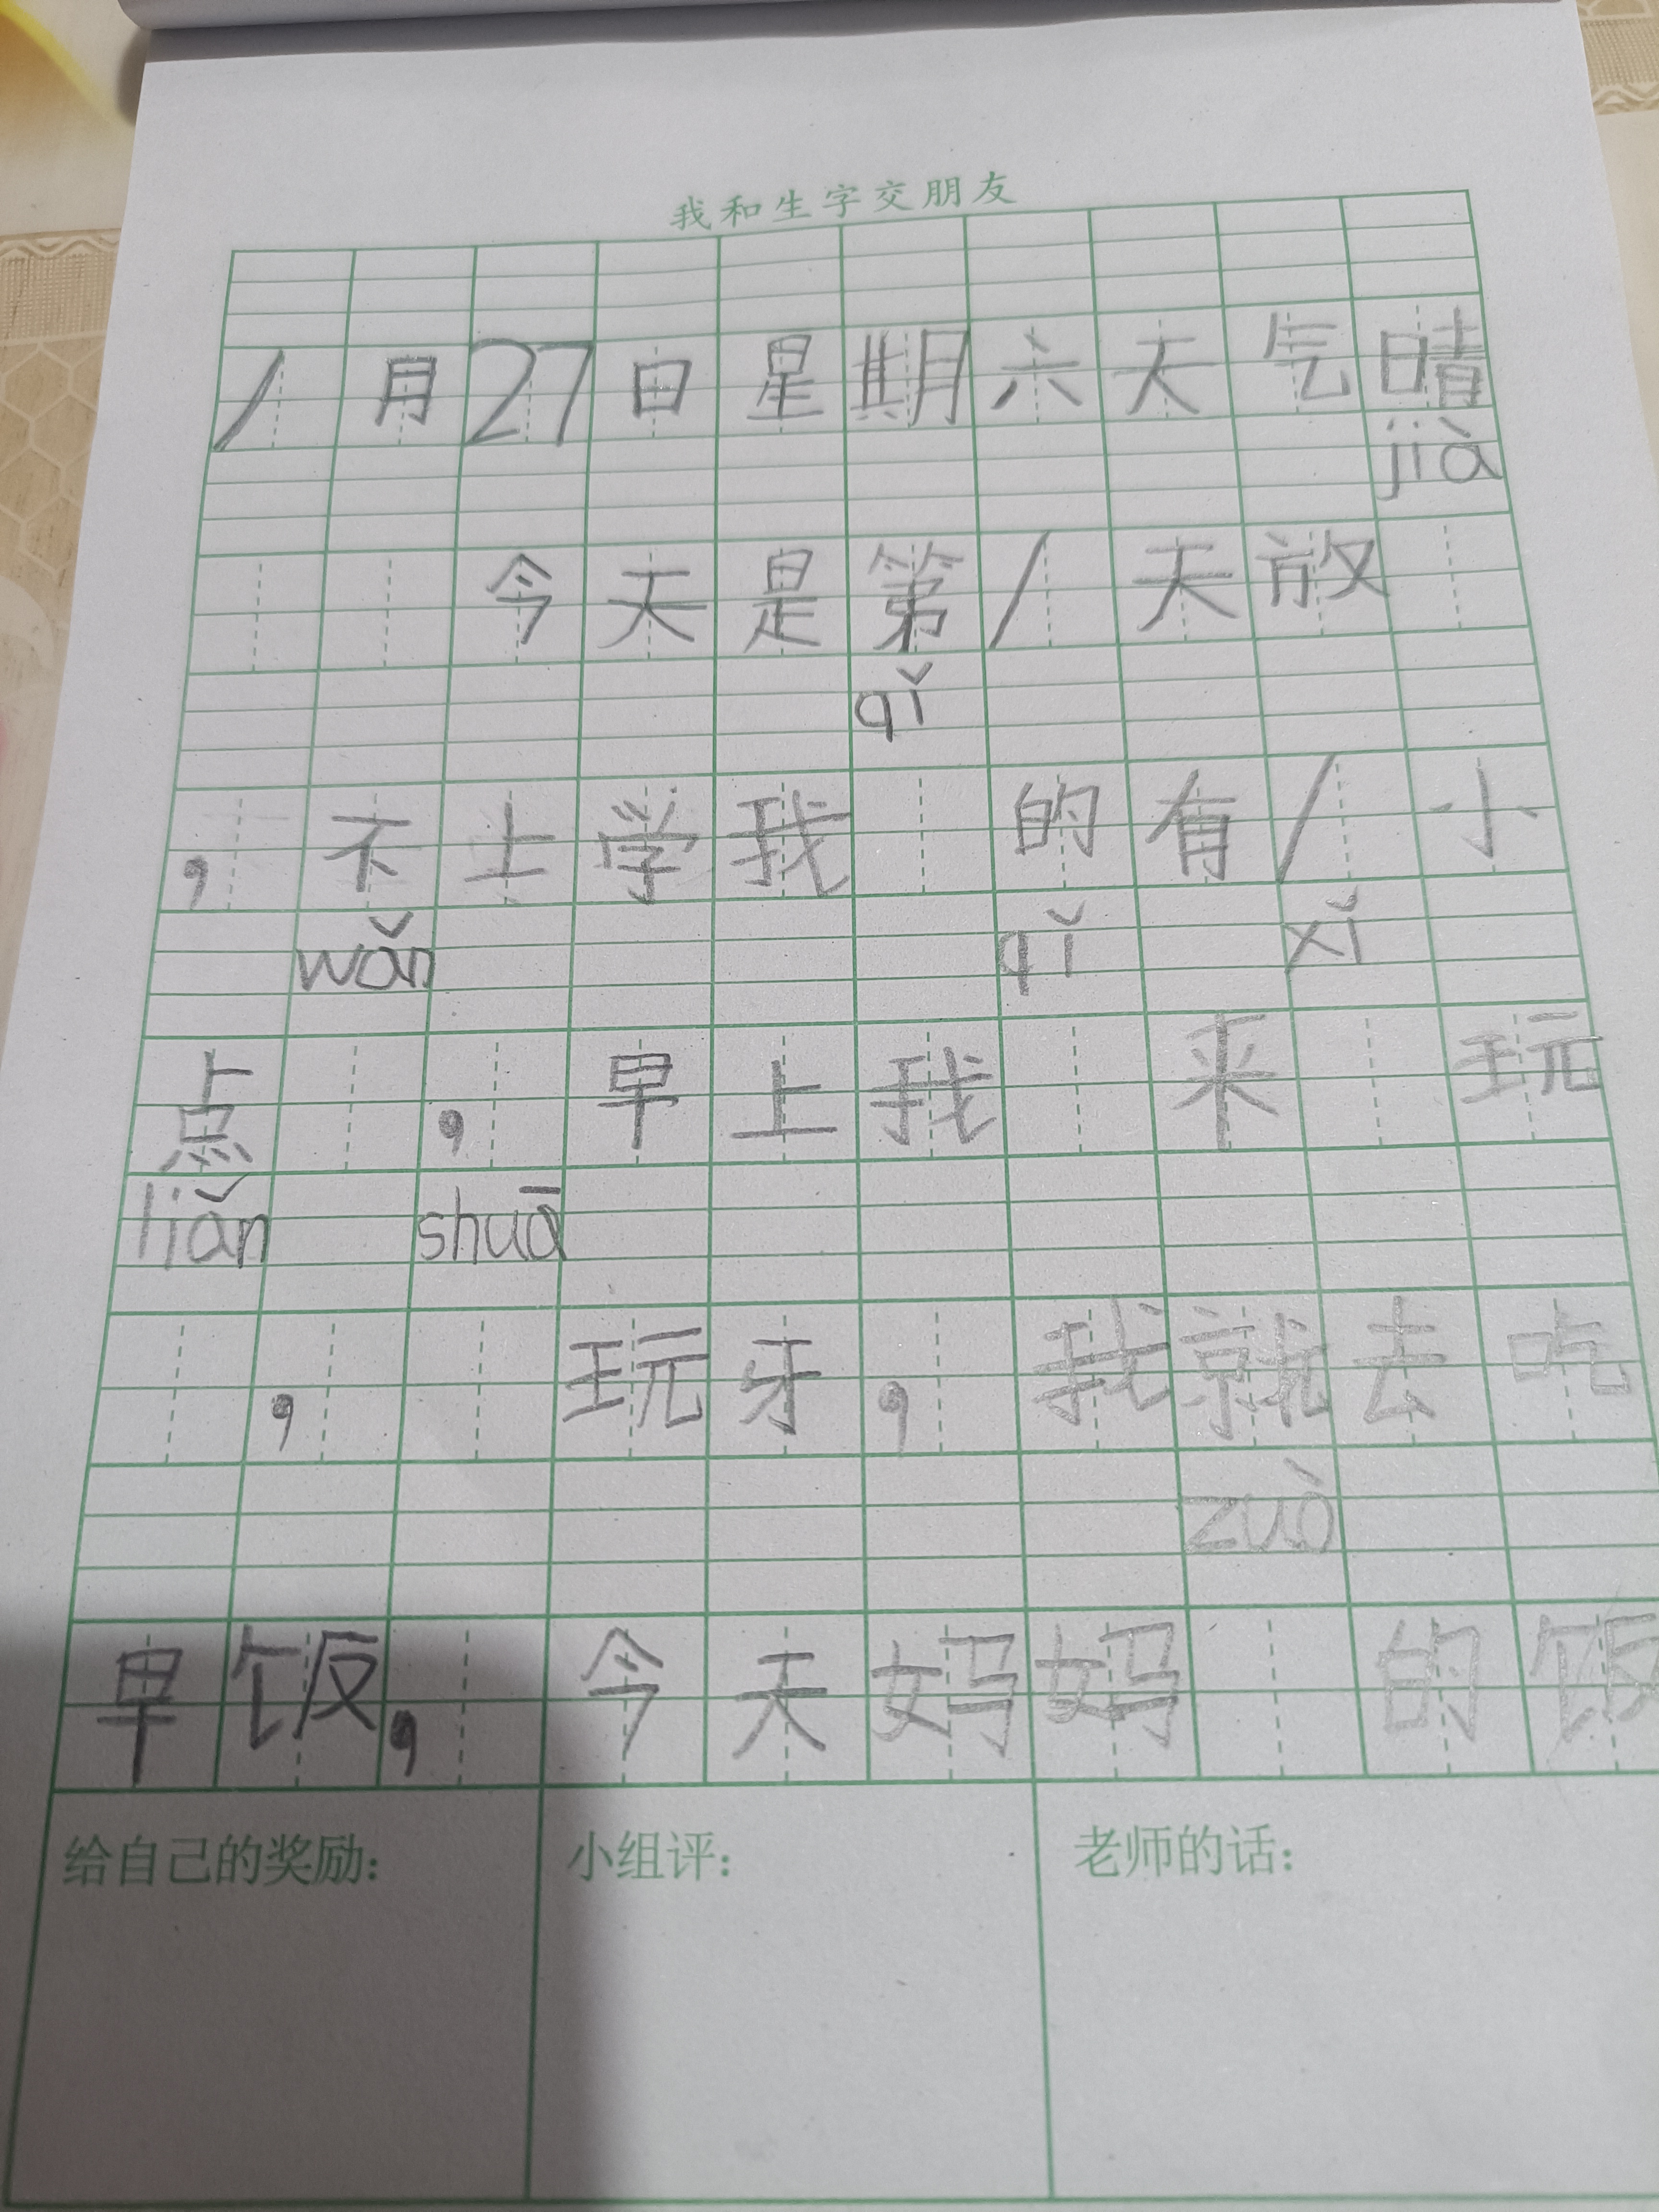 我和生字交朋友
1月27日星期六天气晴
jià
今天是第1天放
qǐ
，不上学我的有1小
wǎn qǐ xǐ
点，早上我来玩
liǎn shuā
，玩牙，我就去吃
zuò
早饭，今天妈妈的饭
给自己的奖励： 小组评： 老师的话：